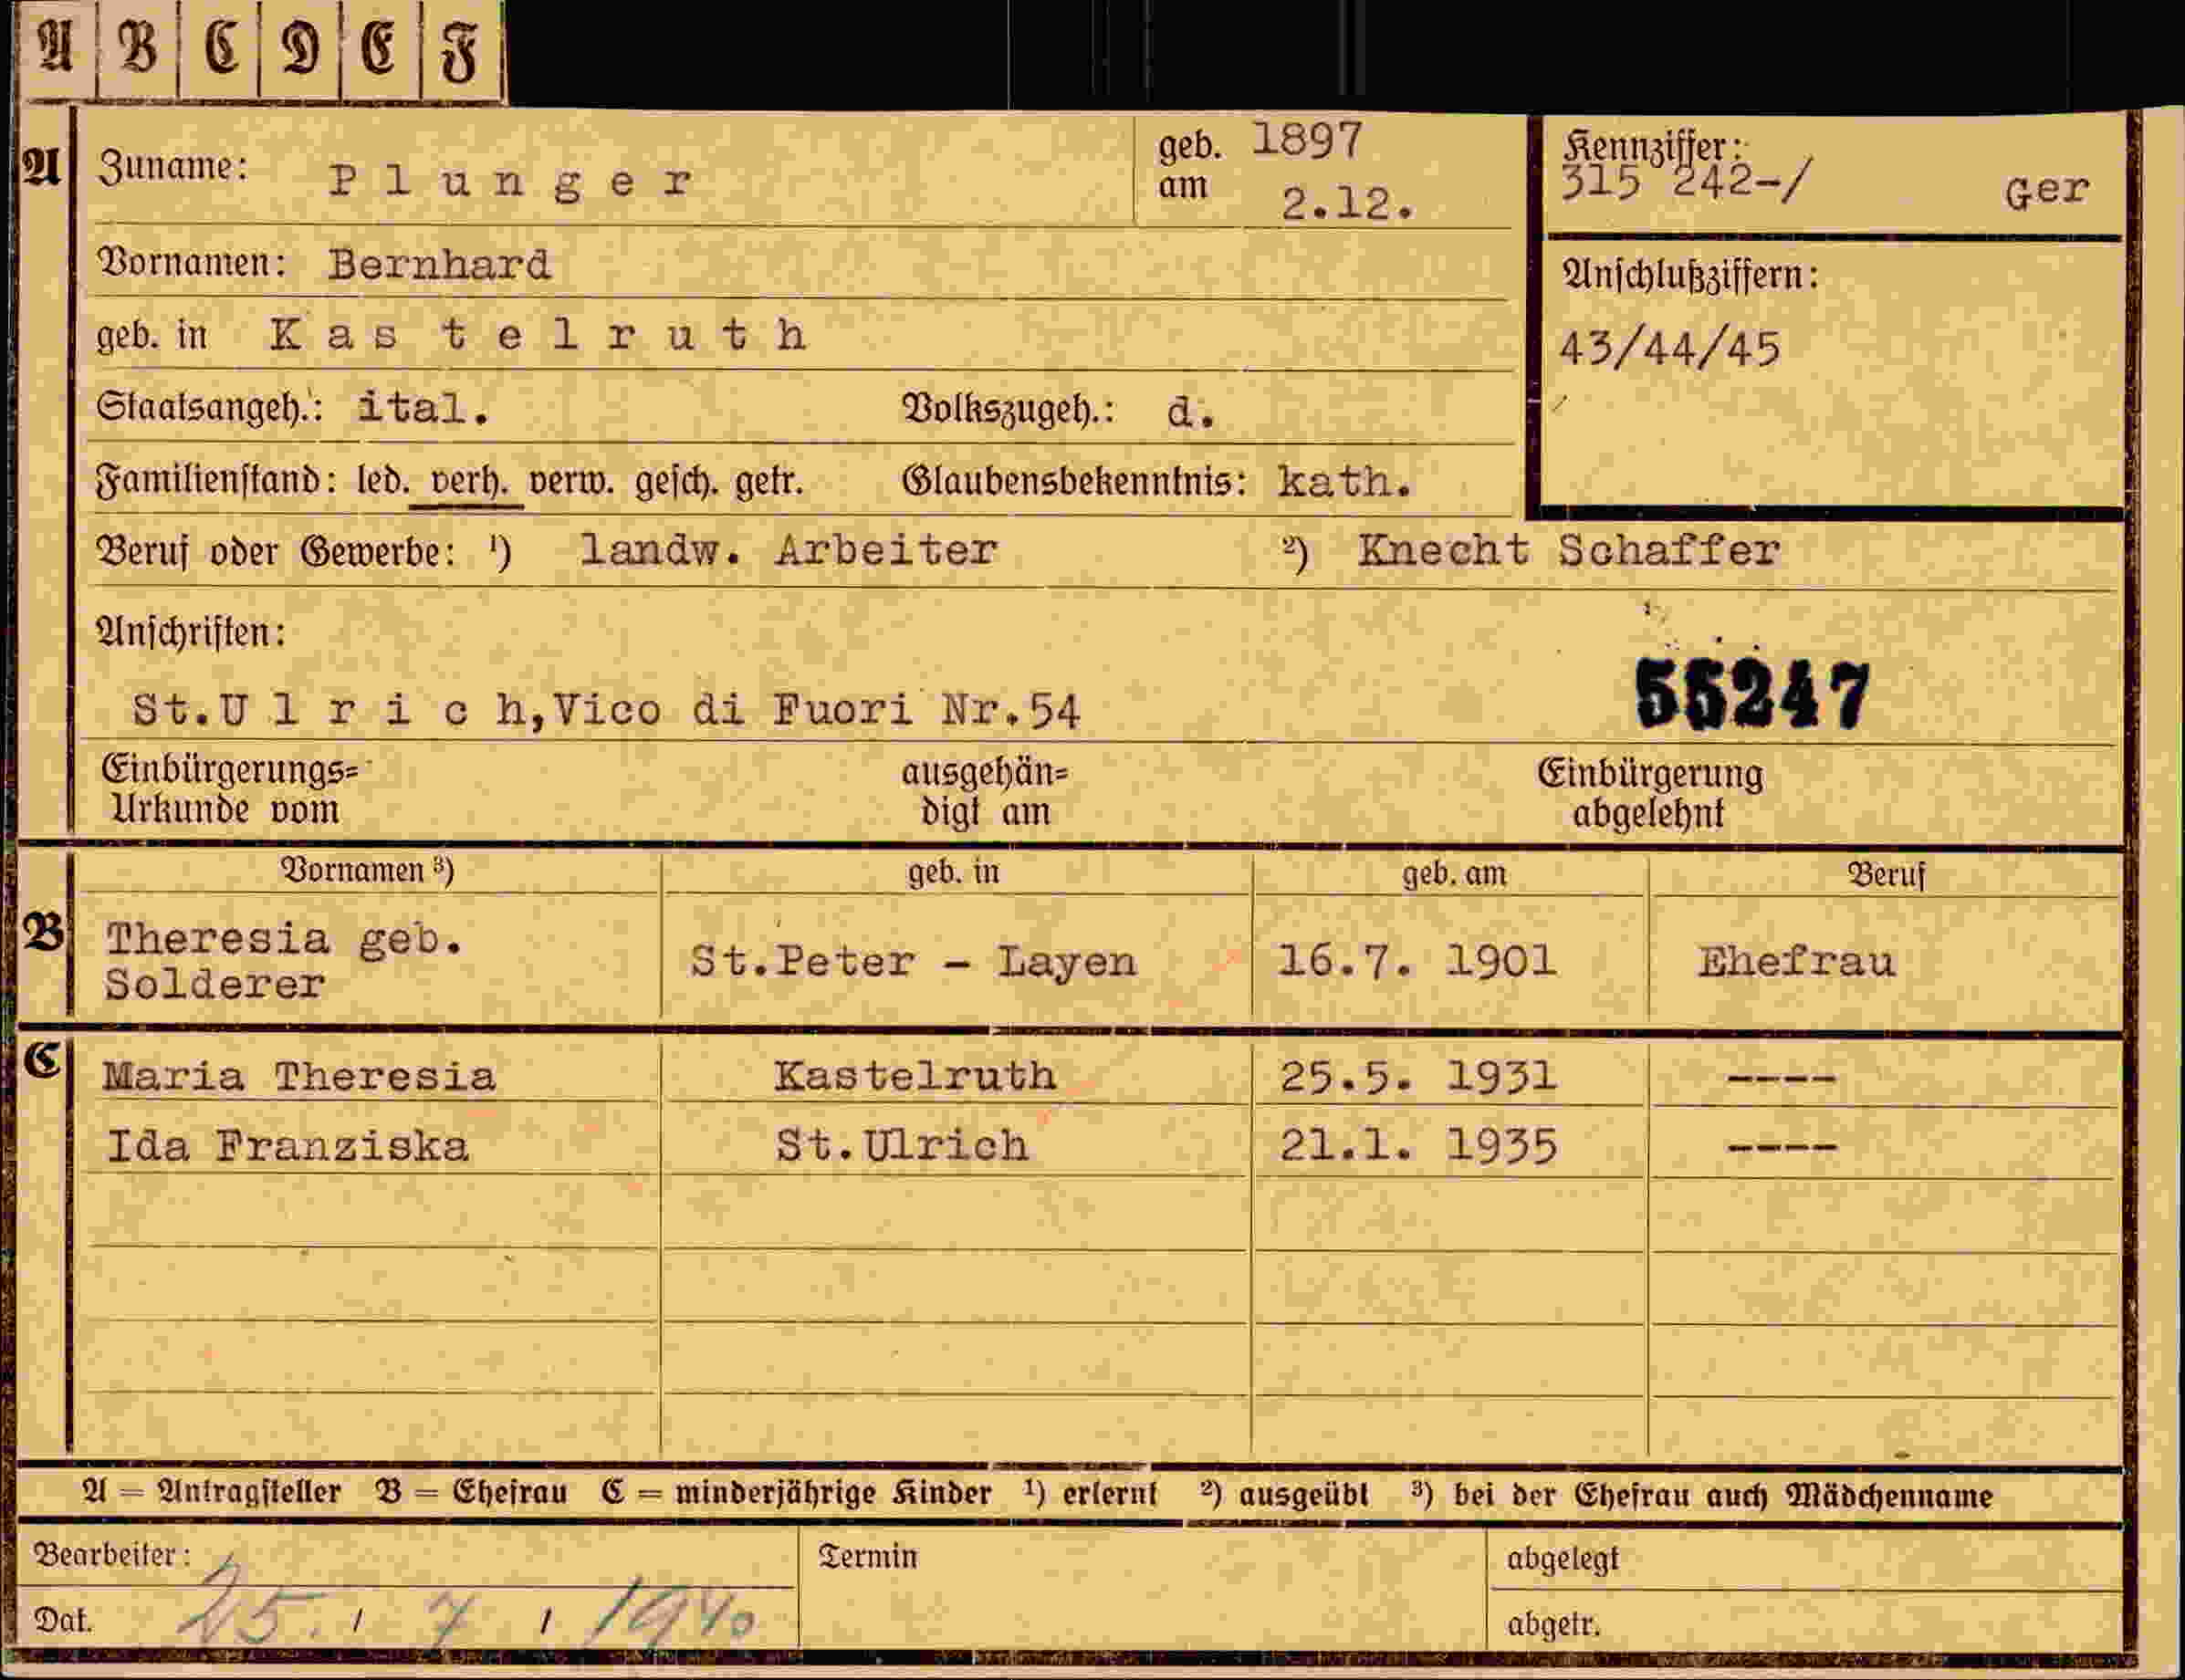 A B C D E F
A Zuname: Plunger geb. am 1897 2.12. Kennziffer: 315 242-/ Ger
Vornamen: Bernhard
geb. in Kastelruth
Anschlußziffern:
43/44/45
Staatsangeh.: ital. Volkszugeh.: d.
Familienstand: led. verh. verw. gesch. getr. Glaubensbekenntnis: kath.
Beruf oder Gewerbe: ¹) landw. Arbeiter ²) Knecht Schaffer
Anschriften:
St.Ulrich,Vico di Fuori Nr.54 55247
Einbürgerungs= ausgehän= Einbürgerung
Urkunde vom digt am abgelehnt
Vornamen ³) geb. in geb. am Beruf
B Theresia geb.
Solderer St.Peter - Layen 16.7. 1901 Ehefrau
C Maria Theresia Kastelruth 25.5. 1931 ----
Ida Franziska St.Ulrich 21.1. 1935 ----
A = Antragsteller B = Ehefrau C = minderjährige Kinder ¹) erlernt ²) ausgeübt ³) bei der Ehefrau auch Mädchenname
Bearbeiter: Termin abgelegt
Dat. 25. / 7 / 1940 abgetr.